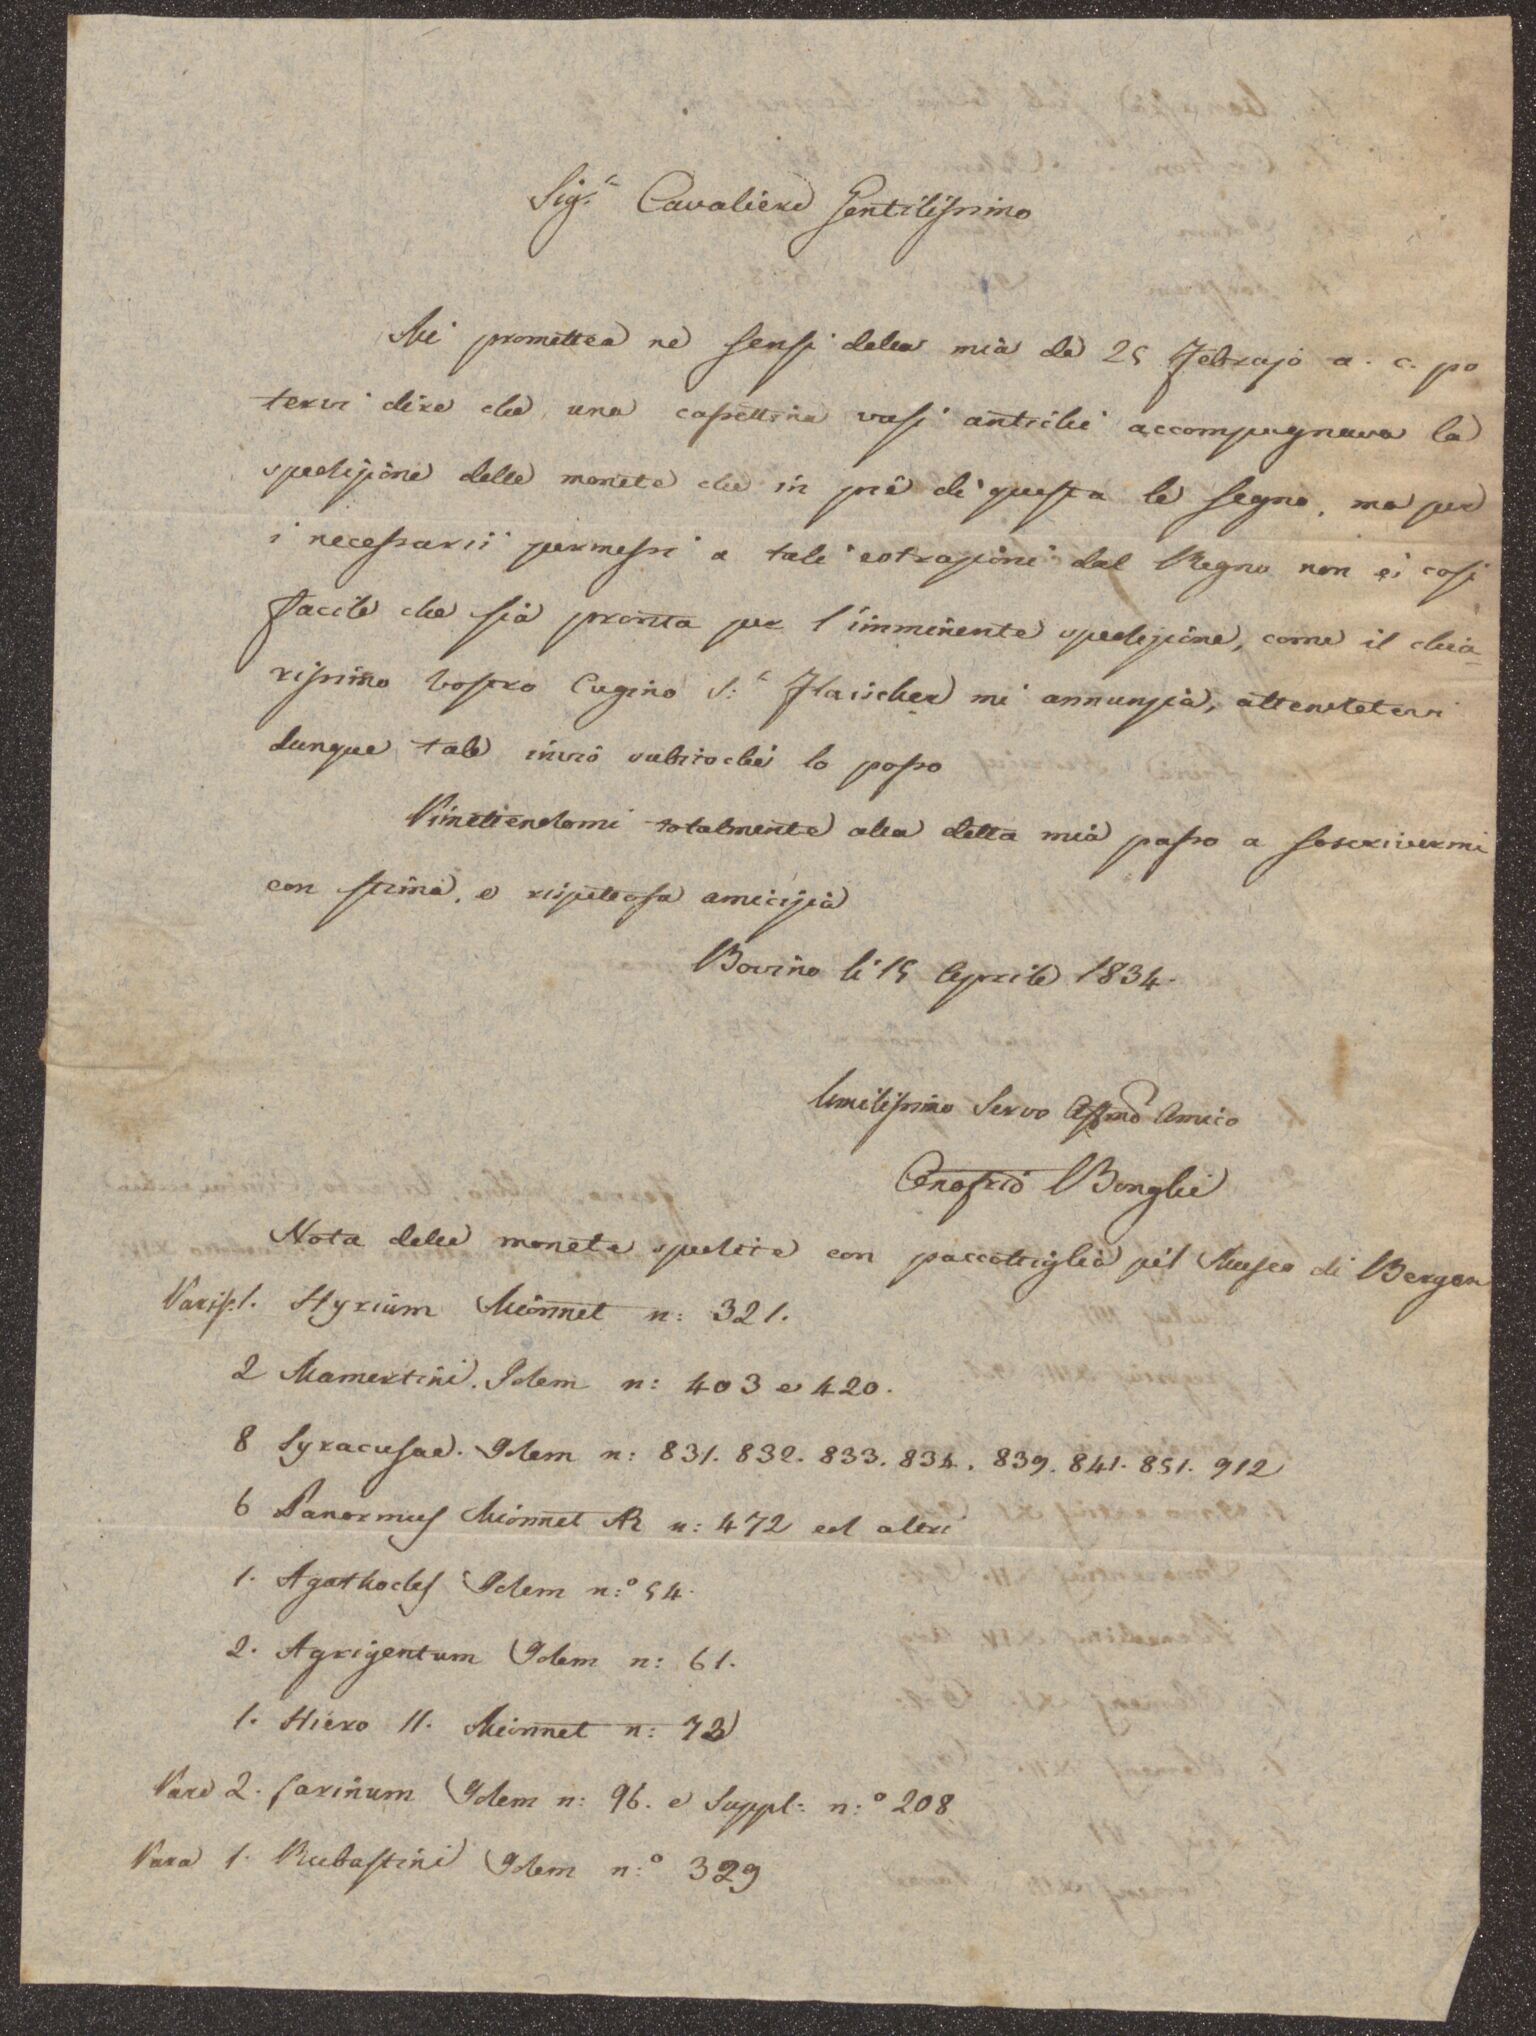 Sig.r Cavaliere Gentilissimo
Mi promettea ne sensi della mia de 25 Febrajo a. c. po
tervi dire che una cassettina vasi antichi accompagnava la
spedizione delle monete che in piè di questa le segno, ma per
i necessarii permessi a tali estrazioni dal Regno non ei così
facile che sia pronta per l'imminente spedizione, come il chia
rissimo Vostro Cugino S.r Flaischer mi annunzia, attendetevi
dunque tale invio subitochè lo posso
Rimettendomi totalmente alla detta mia passo a soscrivermi
con stima, e rispettosa amicizia
Bovino li 15 Aprile 1834.
Umilissimo Servo Affmo Amico
Onofrio Bonghi
Nota delle monete spedite con paccottiglia pel Museo di Bergen
Rariss. 1. Hyrium Mionnet n: 321.
2 Mamertini. Idem n: 403 e 420.
8 Syracusae. Idem n: 831. 832. 833. 834. 839. 841. 851. 912
6 Panormus Mionnet AR n: 472 ed altri
1. Agathocles Idem n:o 54.
2. Agrigentum Idem n: 61.
1. Hiero II. Mionnet n: 73
Rare 2. Larinum Idem n: 96. e Suppl: n:o 208
Rara 1. Rubastini Idem n:o 329